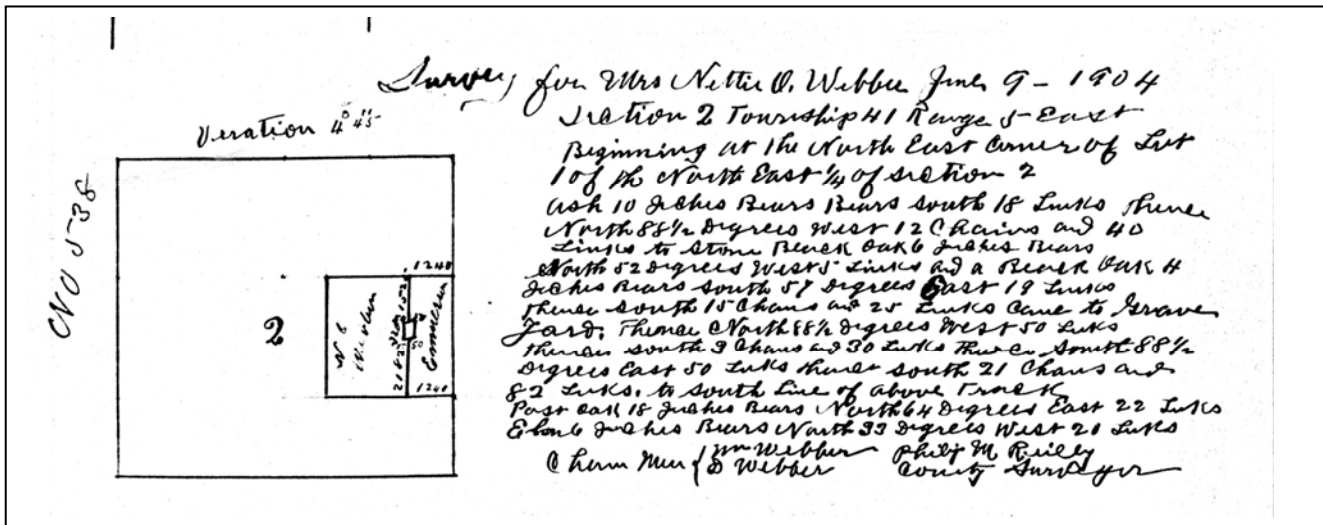 Survey for Mrs Nettie O. Webber June 9 - 1904
Section 2 Township 41 Range 5 East
Beginning at the North East Corner of Lot
1 of the North East 1/4 of section 2
Ash 10 Inches Bears Bears South 18 Links thence
North 88 1/2 Degrees West 12 Chains and 40
Links to Stone Black Oak 6 Inches Bears
North 52 Degrees West 5 Links and a Black Oak 4
Inches Bears South 57 Degrees East 19 Links
thence South 15 Chains and 25 Links Came to Grave
Yard. Thence North 88 1/2 Degrees West 50 Links
thence south 3 Chains and 30 Links Thence South 88 1/2
Degrees East 50 Links thence South 21 Chains and
82 Links. to South Line of above Track
Post Oak 18 Inches Bears North 64 Degrees East 22 Links
6 Inches Bears North 33 Degrees West 20 Links
Chain Men { Wm Webber Philip M Reilly
D Webber County Surveyor
Veration 4° 45"
NO 538
2
1240
N E
50
2182
1240